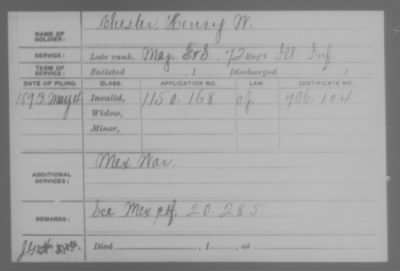 NAME OF SOLDIER: Chester, Henry W.
SERVICE: Late rank, Maj. F&S., 72 Reg't Ill. Inf
TERM OF SERVICE: Enlisted , 1 Discharged , 1
DATE OF FILING. CLASS. APPLICATION NO. LAW CERTIFICATE NO.
1893 May 4 Invalid, 1150.168 906.104
Widow,
Minor,
ADDITIONAL SERVICES: Mex War.
REMARKS: See Mex ctf. 20.285.
Died , 1 , at